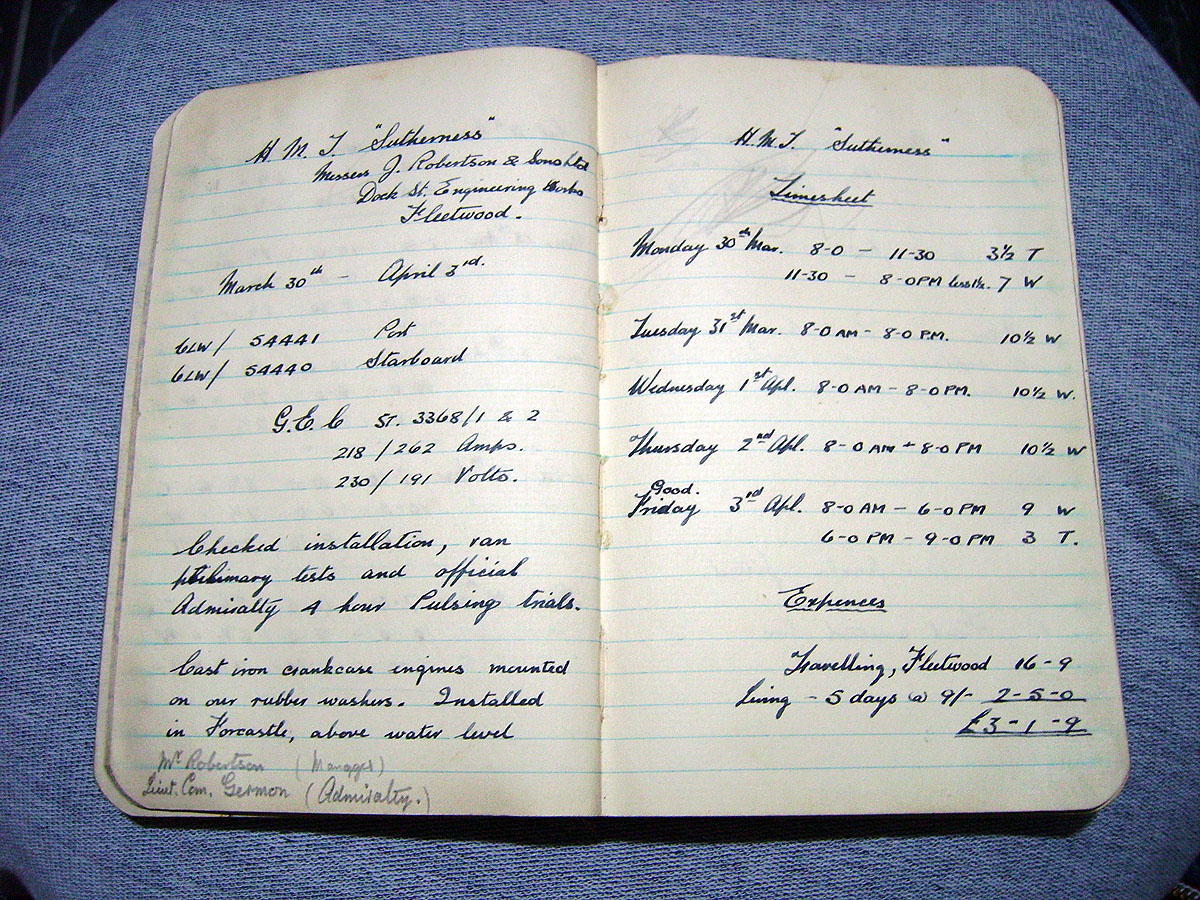 H. M. T. "Sutherness"
Messers J. Robertson & Sons Ltd
Dock St. Engineering Works
Fleetwood.
March 30th - April 3rd.
6LW/ 54441 Port
6LW/ 54440 Starboard
G.E.C ST. 3368/1 & 2
218/262 Amps.
230/191 Volts.
Checked installation, ran
tests and official
Admiralty 4 hour Pulsing trials.
Cast iron crankcase engines mounted
on our rubber washers. Installed
in Forcastle, above water level
Mr Robertson (Manager)
Lieut. Com. Germon (Admiralty.)
H.M.T. "Sutherness"
Timesheet
Monday 30th Mar. 8-0 - 11-30 3½ T
11-30 - 8-0PM less 1½. 7 W
Tuesday 31st Mar. 8-0 AM - 8-0 P.M. 10½ W
Wednesday 1st Apl. 8-0 AM - 8-0 PM. 10½ W.
Thursday 2nd Apl. 8-0 AM + 8-0 PM 10½ W
Good.
Friday 3rd Apl. 8-0 AM - 6-0 PM 9 W
6-0 PM - 9-0 PM 3 T.
Expences
Travelling, Fleetwood 16-9
Living - 5 days @ 9/- 2-5-0
£3-1-9